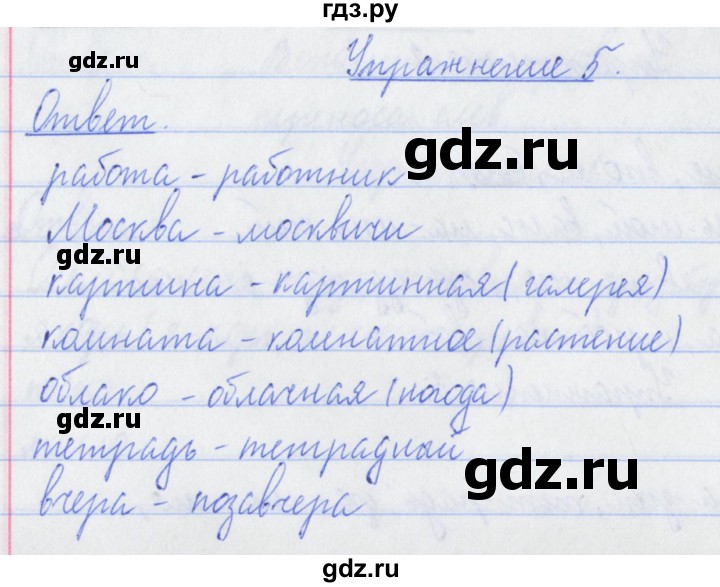 гдз.ру
gdz.ru
gdz.ru
Упражнение 5.
Ответ.
gdz.ru
работа - работник
Москва - москвичи
gdz.ru
картина - картинная (галерея)
комната - комнатное (растение)
облако - облачная (погода)
тетрадь - тетрадный
gdz.ru
gdz.ru
вчера - позавчера
gdz.ru